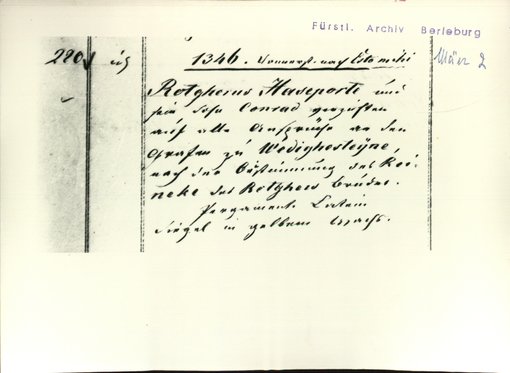 Fürstl. Archiv Berleburg
März 2
220
1346. Donnerst. nach Estomihi
Rotgherus Haseport und
sein Sohn Conrad verzichten
auf alle Ansprüche an den
Grafen zu Wedighesteyne,
nach der Bestimmung des Rei-
neke des Rotgher Bruder.
Pergament. Latein
Siegel in gelbem Wachs.